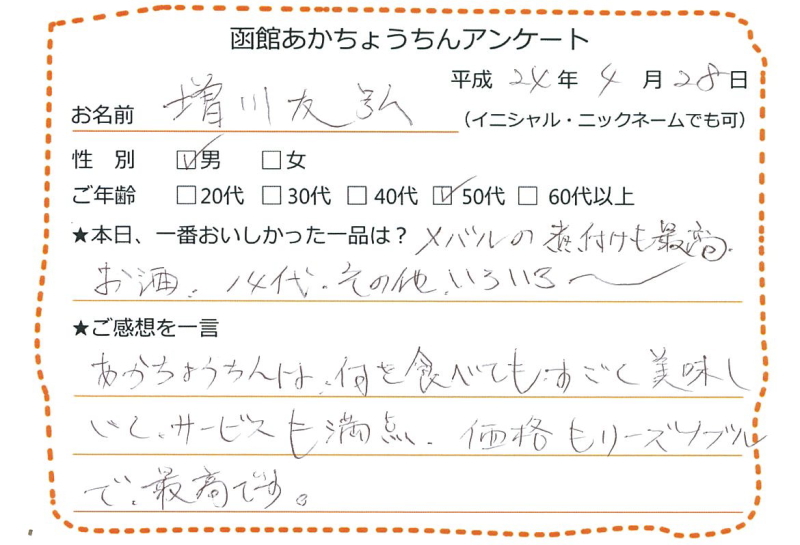 函館あかちょうちんアンケート
平成 24 年 4 月 28 日
お名前 増川友弘 (イニシャル・ニックネームでも可)
性 別 ☑男 □女
ご年齢 □20代 □30代 □40代 ☑50代 □ 60代以上
★本日、一番おいしかった一品は？ メバルの煮付けも最高.
お酒、14代、その他、いろいろ〜
★ご感想を一言
あかちょうちんは、何を食べてもすごく美味し
いし、サービスも満点、価格もリーズナブル
で、最高です。